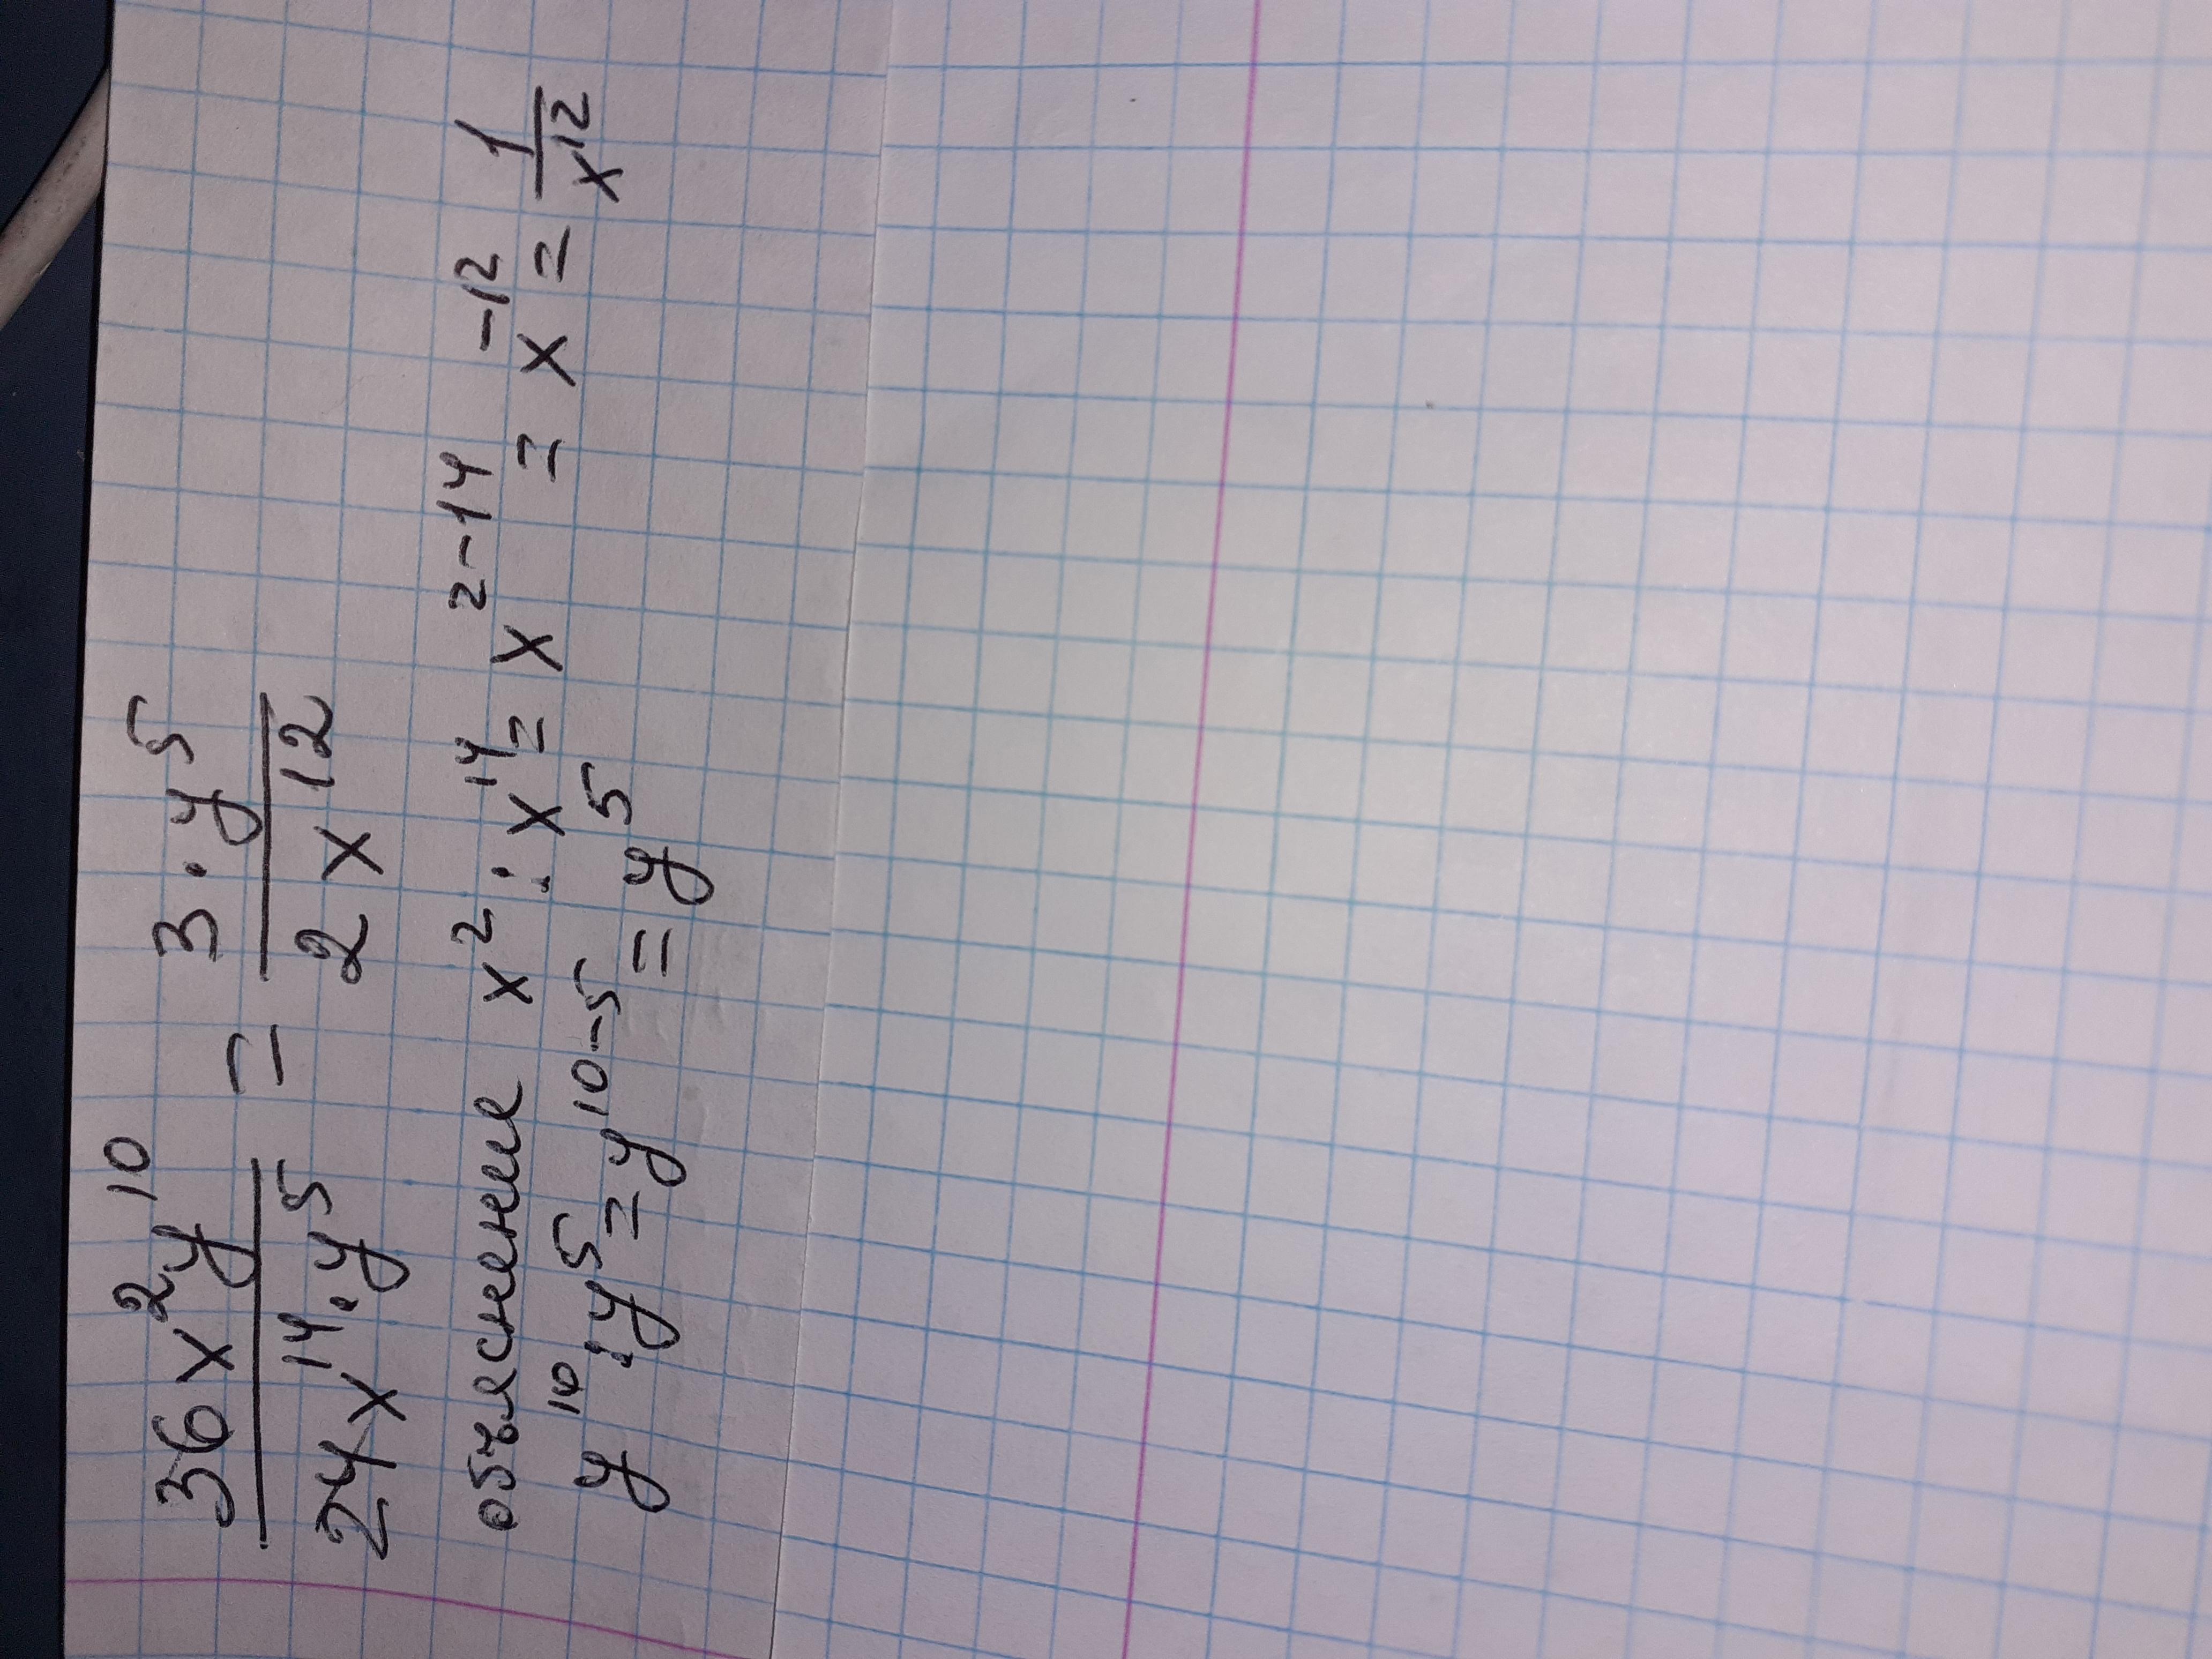 36x²y¹⁰ / 24x¹⁴·y⁵ = 3·y⁵ / 2x¹²
объяснение x² : x¹⁴ = x²⁻¹⁴ = x⁻¹² = 1/x¹²
y¹⁰ : y⁵ = y¹⁰⁻⁵ = y⁵